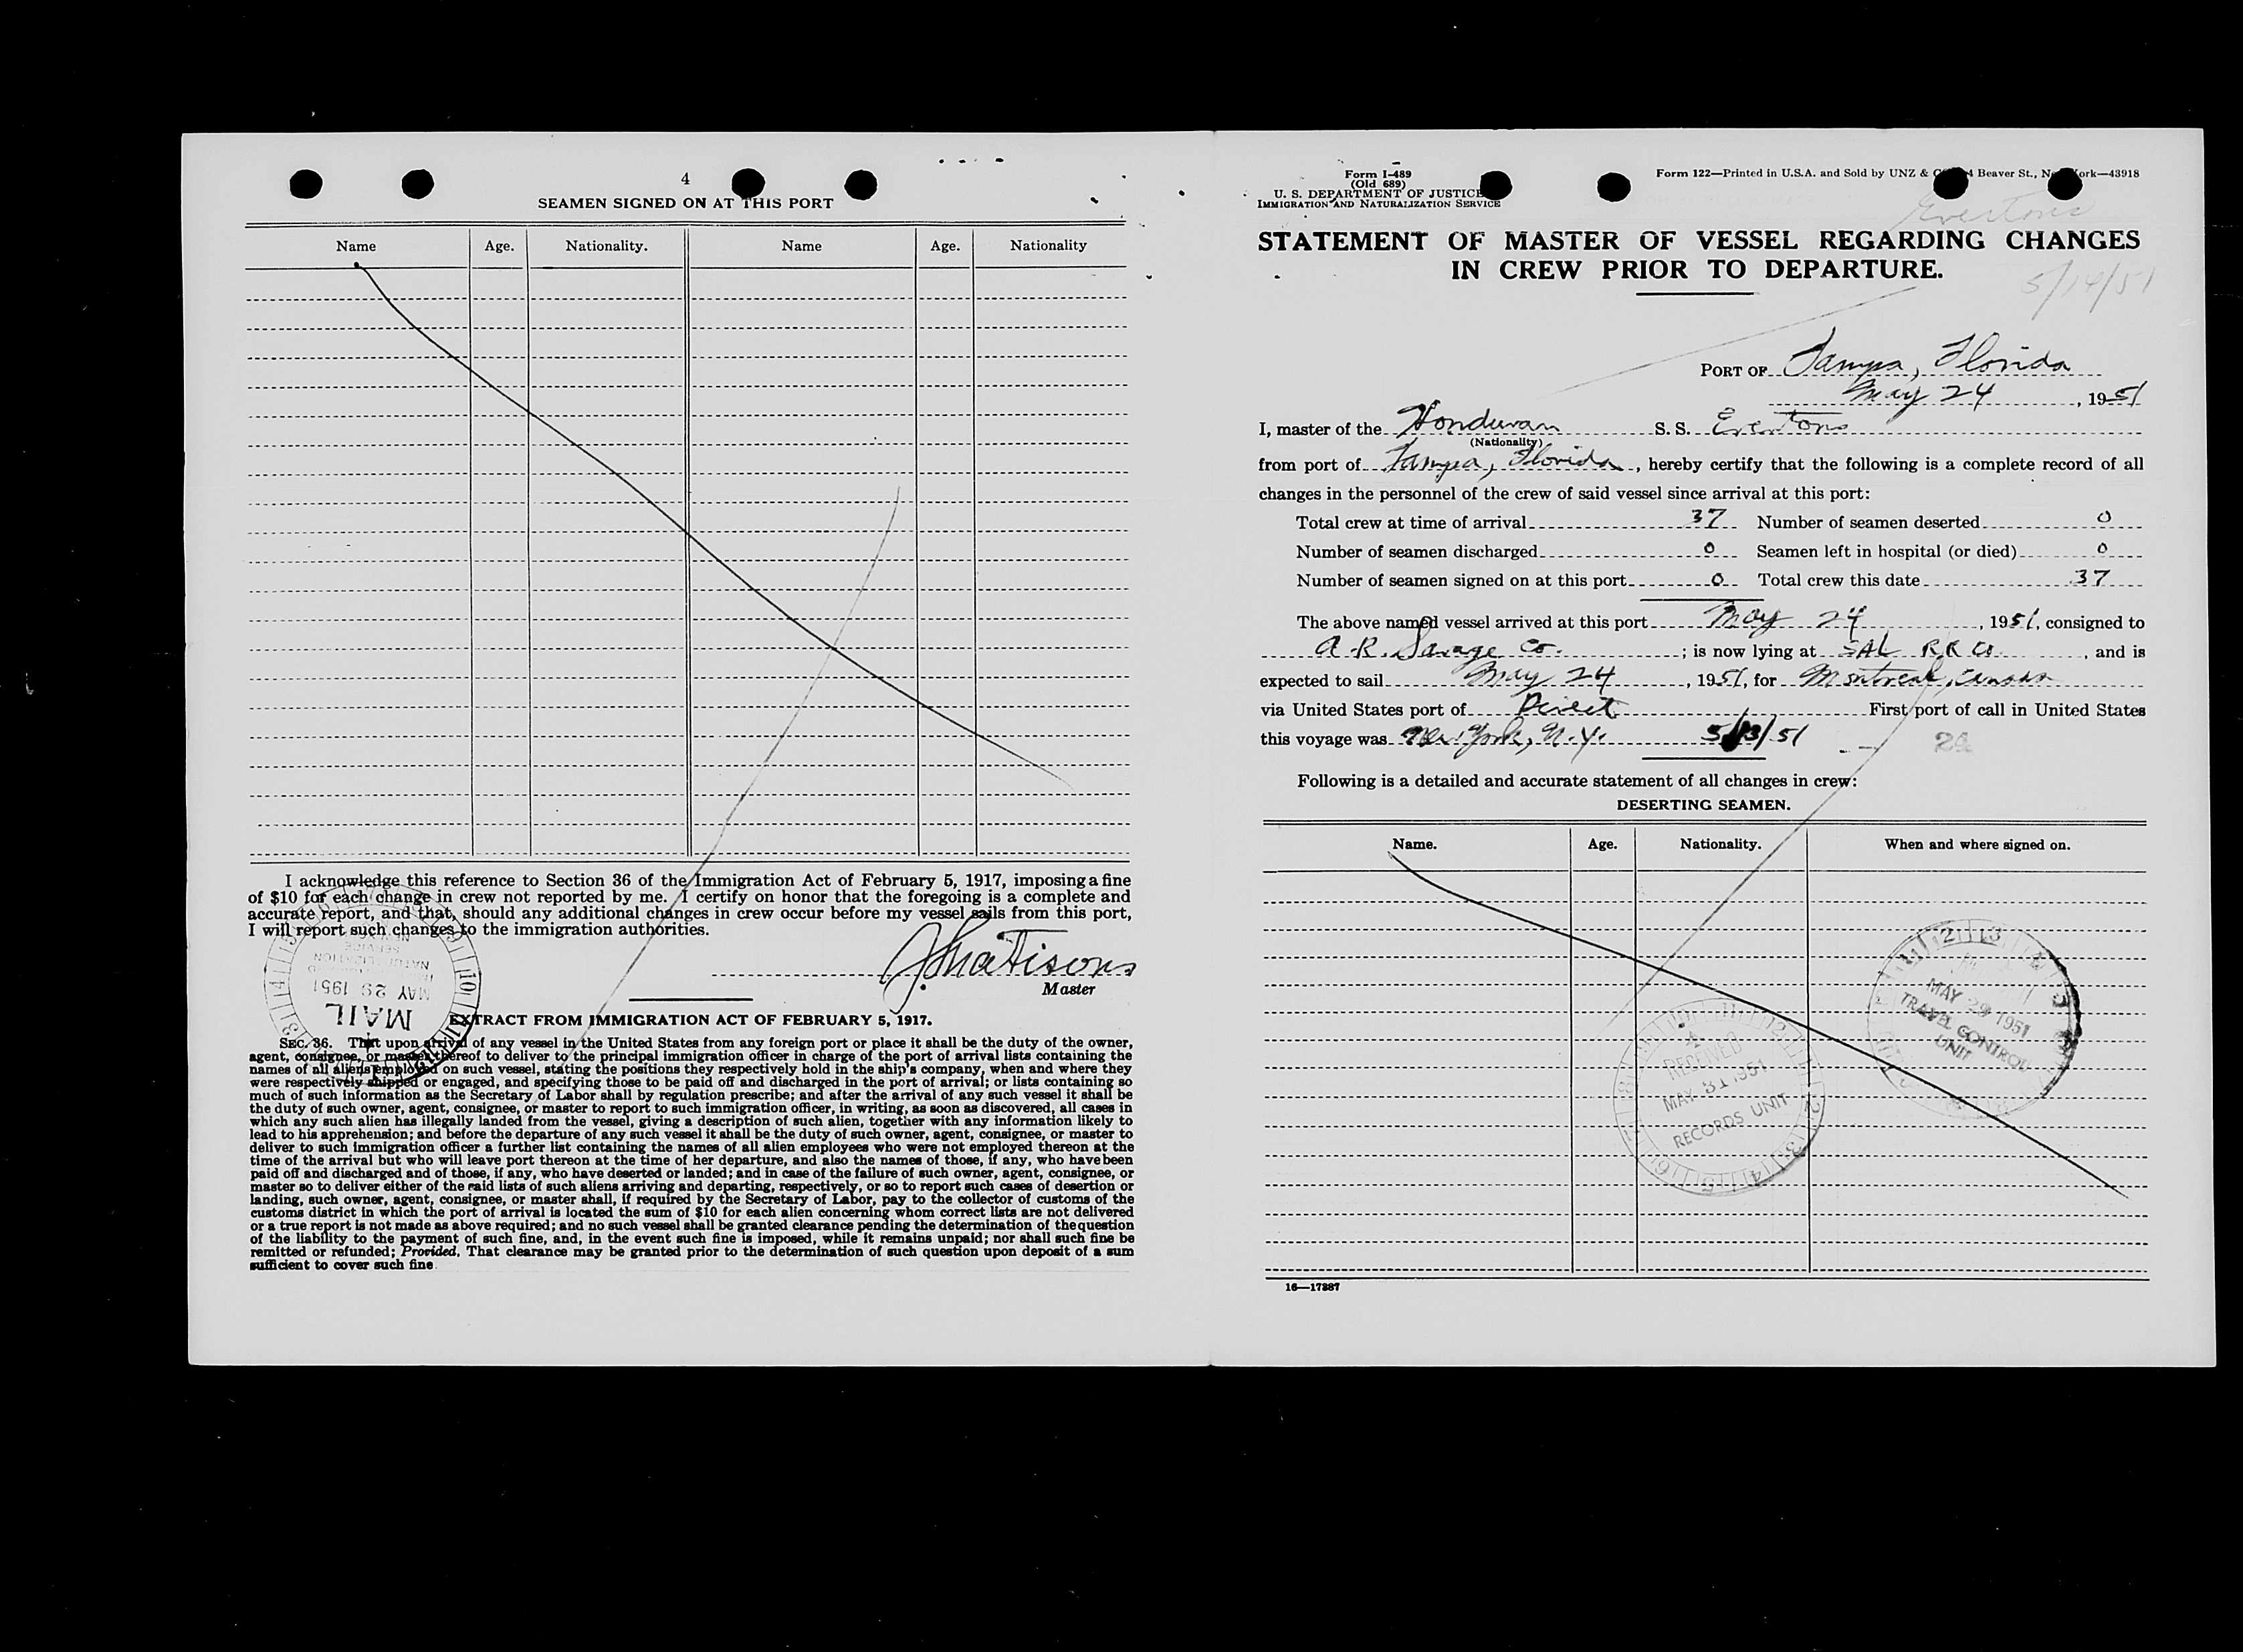 4
SEAMEN SIGNED ON AT THIS PORT
Name Age. Nationality. Name Age. Nationality
I acknowledge this reference to Section 36 of the Immigration Act of February 5, 1917, imposing a fine
of $10 for each change in crew not reported by me. I certify on honor that the foregoing is a complete and
accurate report, and that, should any additional changes in crew occur before my vessel sails from this port,
I will report such changes to the immigration authorities.
Master
MAY 29 1951
MAIL
EXTRACT FROM IMMIGRATION ACT OF FEBRUARY 5, 1917.
SEC. 36. That upon arrival of any vessel in the United States from any foreign port or place it shall be the duty of the owner,
agent, consignee, or master thereof to deliver to the principal immigration officer in charge of the port of arrival lists containing the
names of all aliens employed on such vessel, stating the positions they respectively hold in the ship's company, when and where they
were respectively shipped or engaged, and specifying those to be paid off and discharged in the port of arrival; or lists containing so
much of such information as the Secretary of Labor shall by regulation prescribe; and after the arrival of any such vessel it shall be
the duty of such owner, agent, consignee, or master to report to such immigration officer, in writing, as soon as discovered, all cases in
which any such alien has illegally landed from the vessel, giving a description of such alien, together with any information likely to
lead to his apprehension; and before the departure of any such vessel it shall be the duty of such owner, agent, consignee, or master to
deliver to such immigration officer a further list containing the names of all alien employees who were not employed thereon at the
time of the arrival but who will leave port thereon at the time of her departure, and also the names of those, if any, who have been
paid off and discharged and of those, if any, who have deserted or landed; and in case of the failure of such owner, agent, consignee, or
master so to deliver either of the said lists of such aliens arriving and departing, respectively, or so to report such cases of desertion or
landing, such owner, agent, consignee, or master shall, if required by the Secretary of Labor, pay to the collector of customs of the
customs district in which the port of arrival is located the sum of $10 for each alien concerning whom correct lists are not delivered
or a true report is not made as above required; and no such vessel shall be granted clearance pending the determination of the question
of the liability to the payment of such fine, and, in the event such fine is imposed, while it remains unpaid; nor shall such fine be
remitted or refunded; Provided, That clearance may be granted prior to the determination of such question upon deposit of a sum
sufficient to cover such fine.
Form I-489
(Old 689)
U. S. DEPARTMENT OF JUSTICE
IMMIGRATION AND NATURALIZATION SERVICE
Form 122—Printed in U.S.A. and Sold by UNZ & Beaver St., 43918
Evertons
STATEMENT OF MASTER OF VESSEL REGARDING CHANGES
IN CREW PRIOR TO DEPARTURE.
5/14/51
PORT OF Tampa, Florida
May 24, 1951
I, master of the Honduran S. S. Evertons
(Nationality)
from port of Tampa, Florida, hereby certify that the following is a complete record of all
changes in the personnel of the crew of said vessel since arrival at this port:
Total crew at time of arrival 37 Number of seamen deserted 0
Number of seamen discharged 0 Seamen left in hospital (or died) 0
Number of seamen signed on at this port 0 Total crew this date 37
The above named vessel arrived at this port May 24, 1951, consigned to
A. R. Savage Co. ; is now lying at SAL RR Co, and is
expected to sail May 24, 1951, for Montreal, Canada
via United States port of Direct First port of call in United States
this voyage was New York, N.Y. 5/13/51
Following is a detailed and accurate statement of all changes in crew:
DESERTING SEAMEN.
Name. Age. Nationality. When and where signed on.
MAY 29 1951
TRAVEL CONTROL
UNIT
RECEIVED
MAY 31 1951
RECORDS UNIT
16—17887